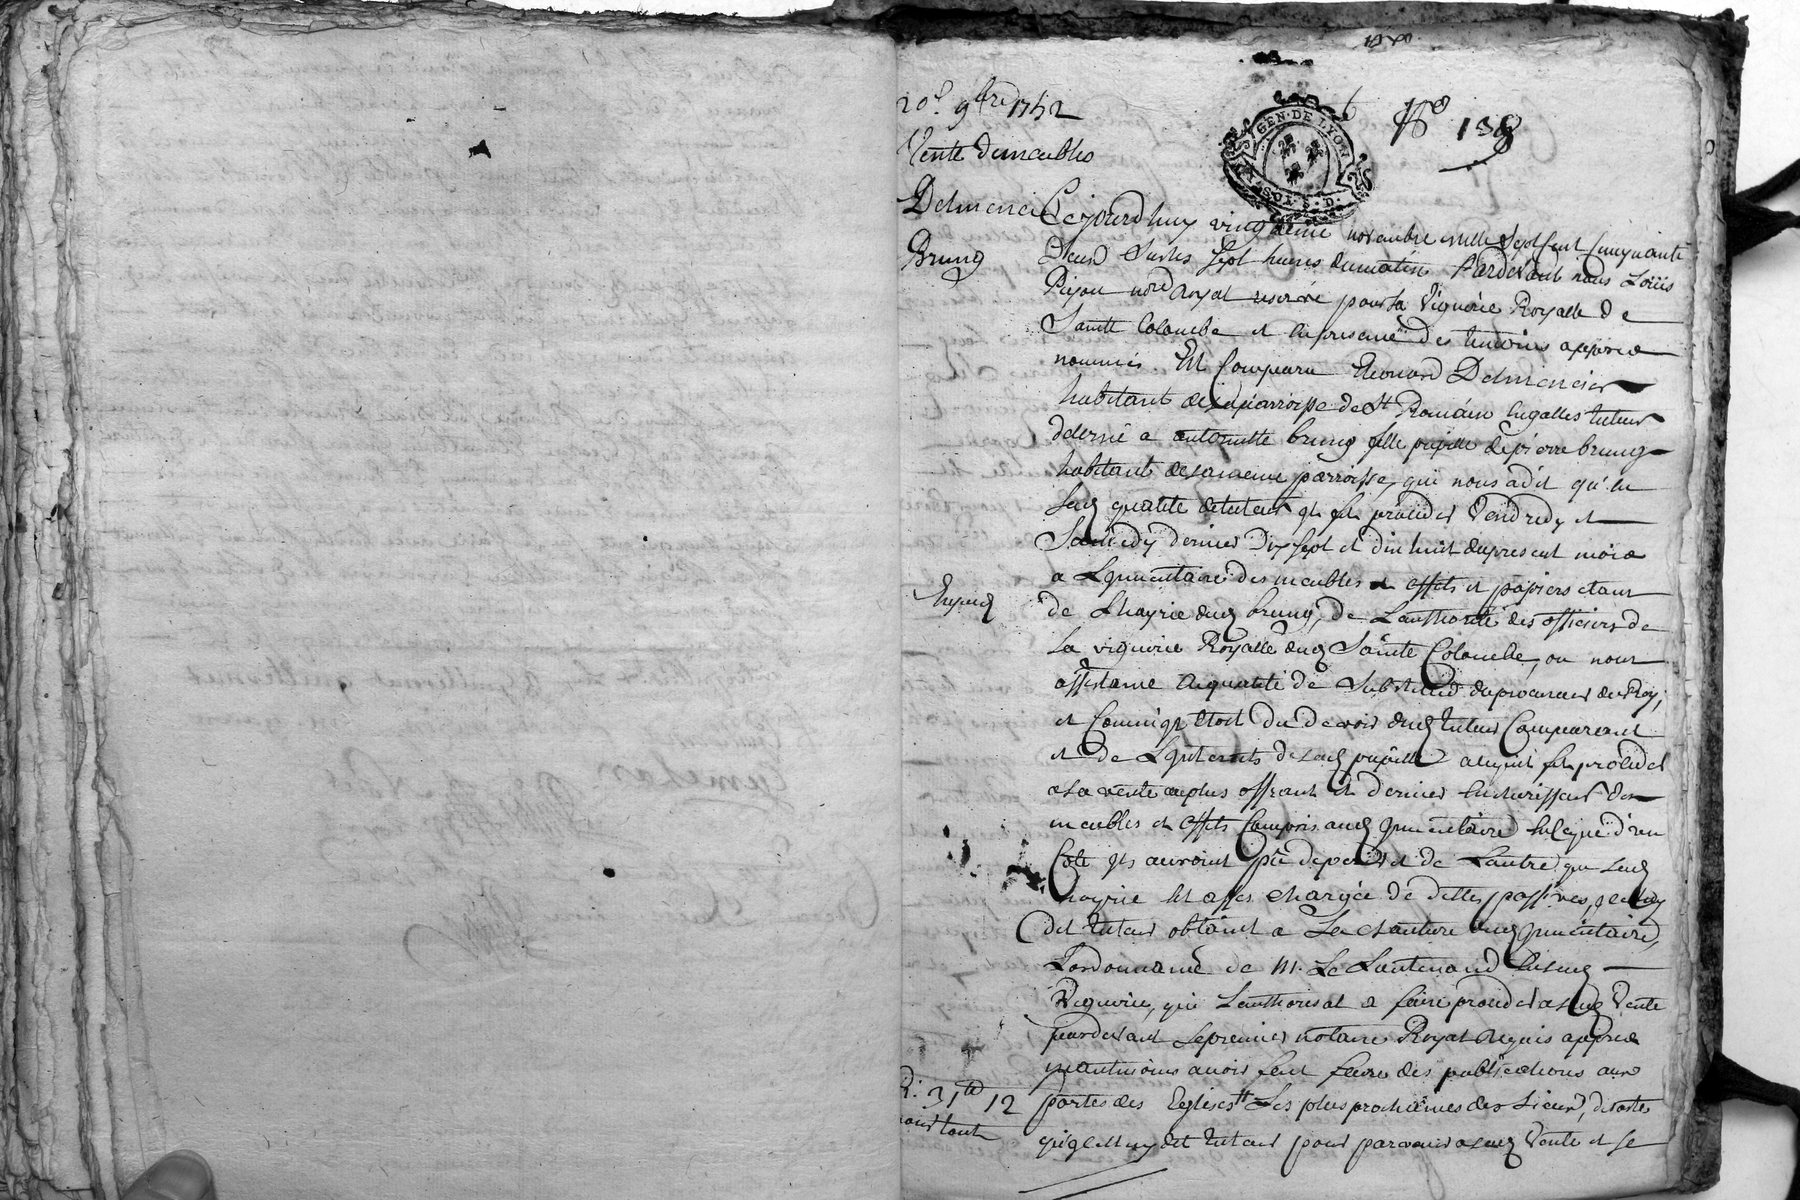 20e 9bre 1752
Vente de meubles
Delmencier
Brung
GEN. DE LYON
S. D.
No 138
Cejourdhuy vingtieme novembre mille Sept Cent Cinquante
Deux Sur les Sept heures du matin Pardevant nous Loüis
nore Royal reservé pour la Viguérie Royalle de
Sainte Colombe et En presence des temoins apprès
nommés Est Comparu Eleonard Delmencier
habitant de la parroisse de St Romain Engalles tuteur
decerné a antoinette brung fille pupille de pierre brung
habitant de la meme parroisse, qui nous a dit qu'en
sad qualité de tuteur il fit proceder Vendredy et
Samedy dernier Dix sept et dix huit du present mois
a L'inventaire des meubles et effets et papiers etant
de L'hoyrie dud brung, de L'authorité des officiers de
la viguerie Royalle dud Sainte Colombe, ou nous
assistame En qualité de Substitud du procureur du Roy,
et Comme il etoit du devoir dud tuteur Comparent
et de L'interets de sad pupille a luy fit proceder
a la vente au plus offrant et dernier Encherisseur des
meubles et effets Compris aud inventaire
Cote ils auroint de perir et de L'autre que lad
hoyrie est asses chargée de dettes passives,
dit tuteur obtint a La Cloture dud inventaire,
L'ordonnance de M. Le Lieutenand En lad
Viguerie, qui L'authorisat a faire proceder a lad Vente
pardevant le premier notaire Royal Requis apprès
neantmoins avoir fait faire des publications aux
portes des Eglises Les plus prochaines des Lieux,
dit tuteur pour parvenir a lad Vente et se
R: 31 tt 12
pour tout